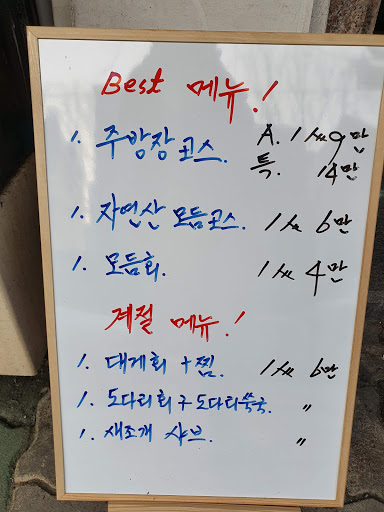 Best 메뉴!
1. 주방장 코스. A. 1人 9만
특. 14만
1. 자연산 모듬코스. 1人 6만
1. 모듬회. 1人 4만
계절 메뉴!
1. 대게회 + 찜. 1人 6만
1. 도다리회 구 도다리쑥국. "
1. 새조개 샤브. "